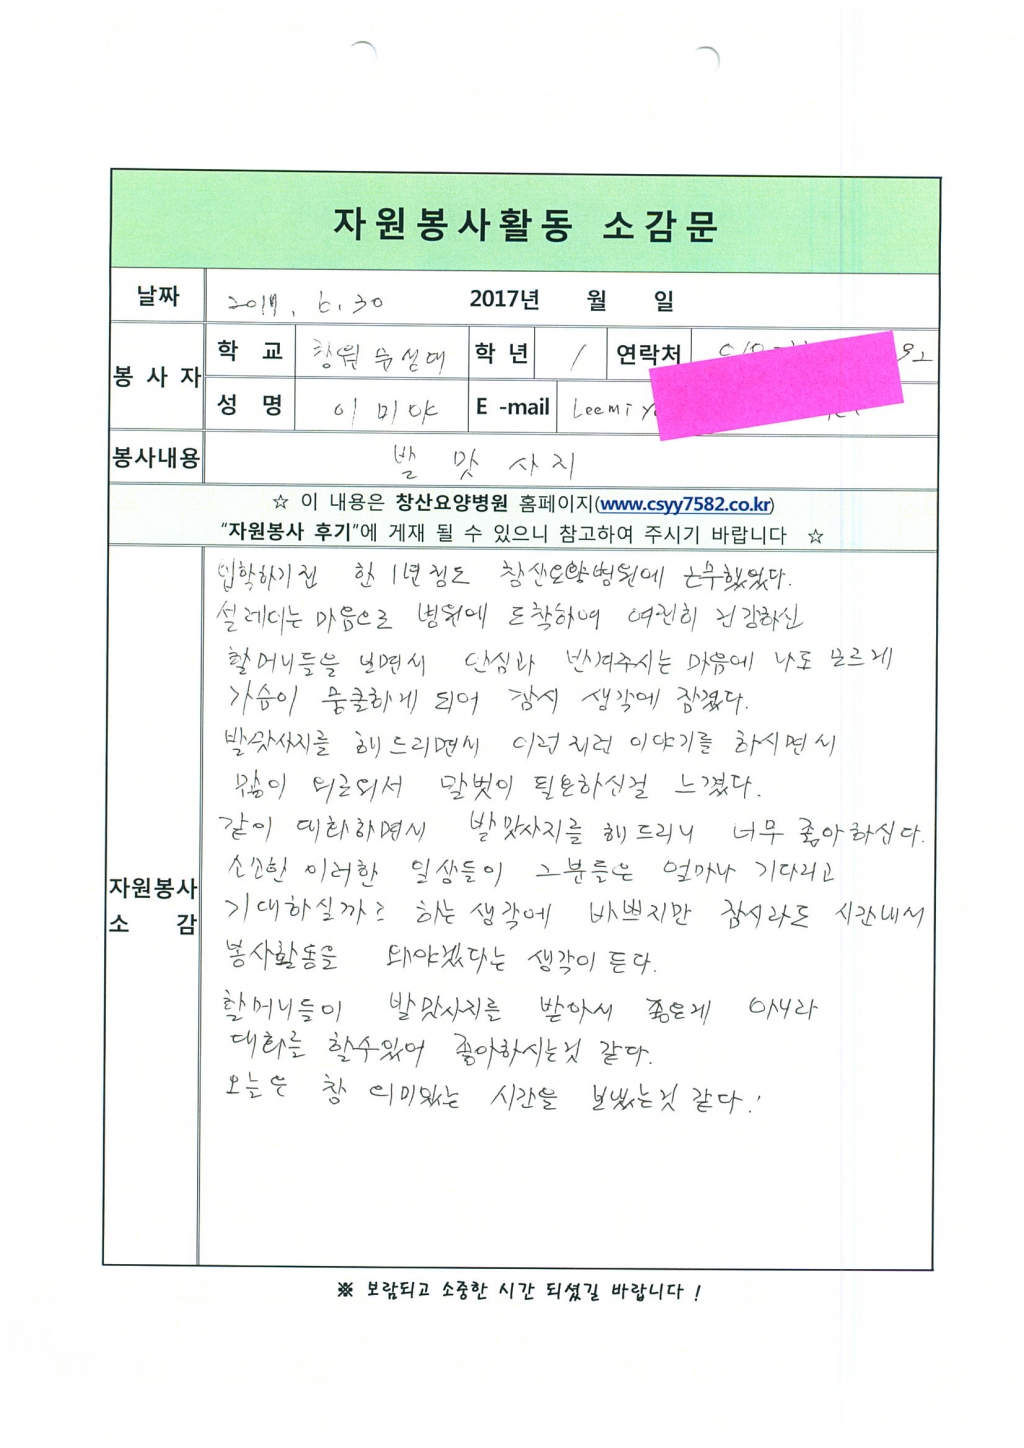 자원봉사활동 소감문
날짜 2017. 6. 30 2017년 월 일
봉사자 학교 창원문성대 학년 1 연락처
성명 이미야 E-mail Leemi
봉사내용 발 맛사지
☆ 이 내용은 창산요양병원 홈페이지(www.csyy7582.co.kr)
"자원봉사 후기"에 게재 될 수 있으니 참고하여 주시기 바랍니다 ☆
자원봉사 소감
입학하기전 한 1년정도 창산요양병원에 근무했었다.
설레이는 마음으로 병원에 도착하여 여전히 건강하신
할머니들을 보면서 안심과 반겨주시는 마음에 나도 모르게
가슴이 뭉클하게 되어 잠시 생각에 잠겼다.
발맛사지를 해드리면서 이런저런 이야기를 하시면서
많이 외로워서 말벗이 필요하신걸 느꼈다.
같이 대화하면서 발맛사지를 해드리니 너무 좋아하신다.
소소한 이러한 일상들이 그분들은 얼마나 기다리고
기대하실까? 하는 생각에 바쁘지만 잠시라도 시간내서
봉사활동을 와야겠다는 생각이 든다.
할머니들이 발맛사지를 받아서 좋은게 아니라
대화를 할수있어 좋아하시는것 같다.
오늘은 참 의미있는 시간을 보냈는것 같다!
※ 보람되고 소중한 시간 되셨길 바랍니다 !